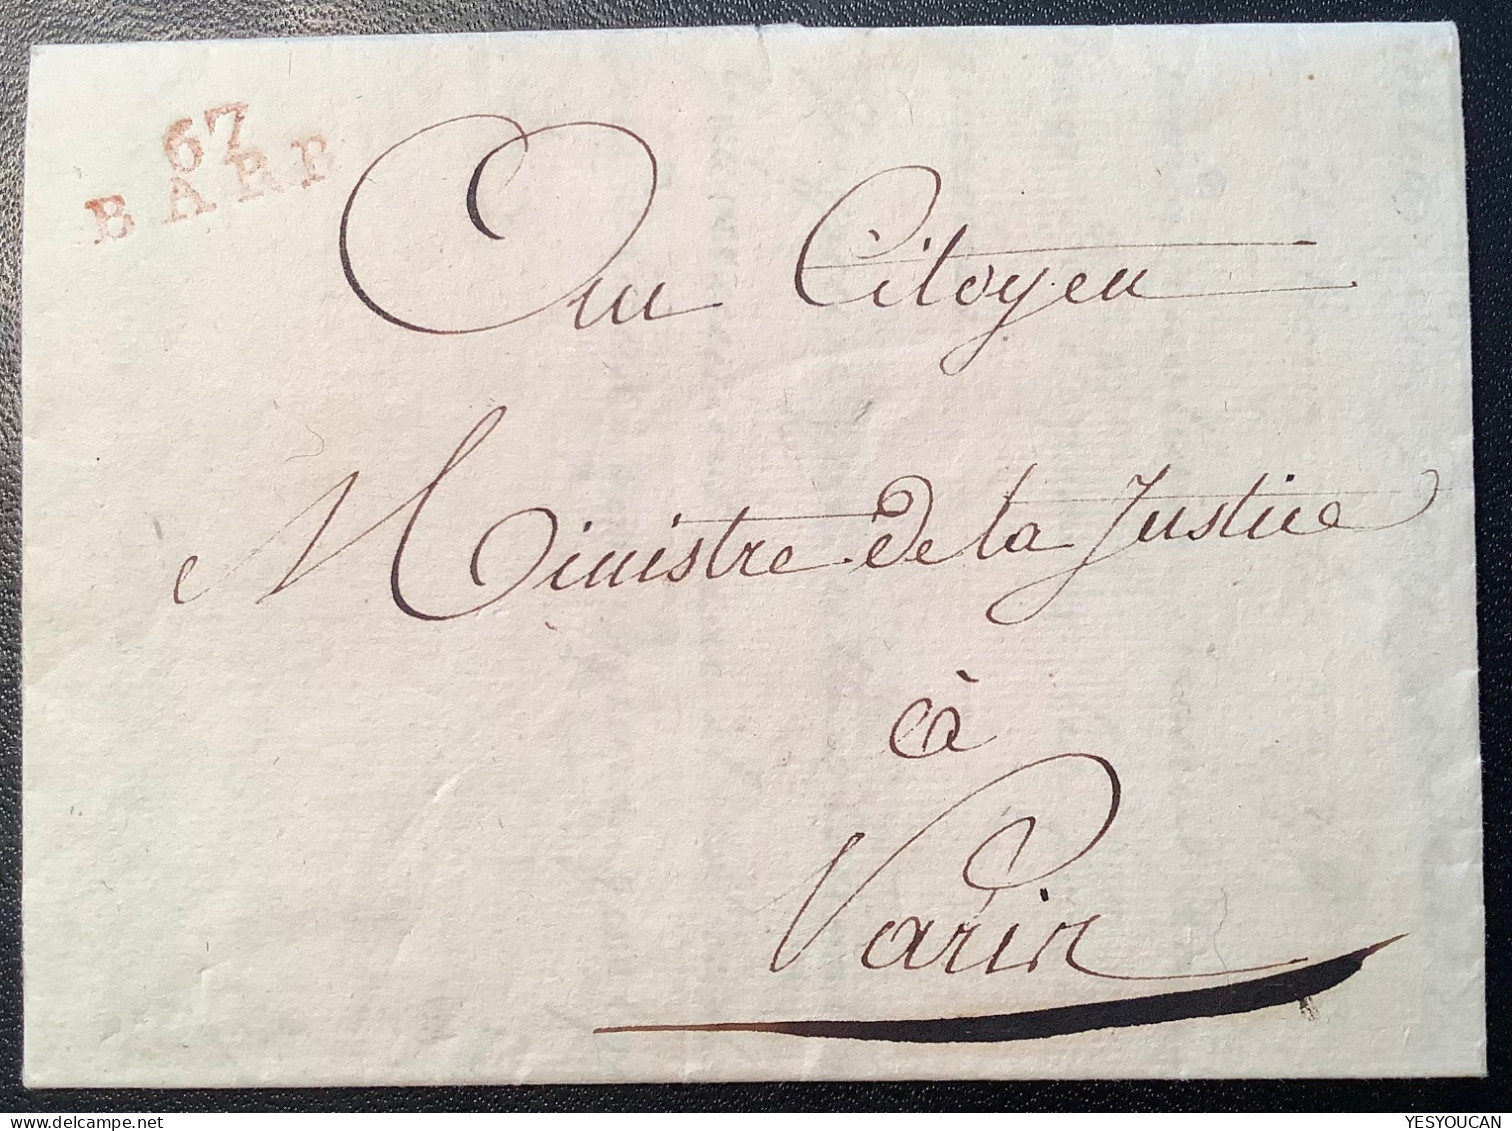 67
BARR
Au Citoyen
Ministre de la Justice
à
Paris
YESYOUCAN